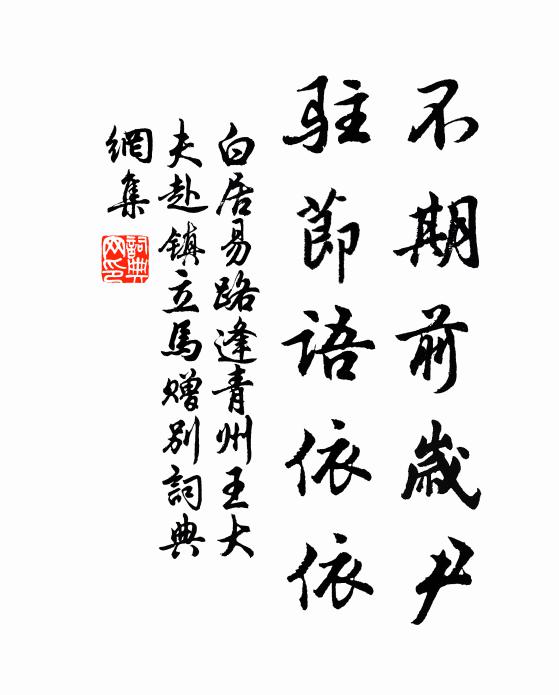 不期前歲尹
駐節語依依
白居易路逢青州王大
夫赴鎮立馬贈別詞典
網集
詞典網印